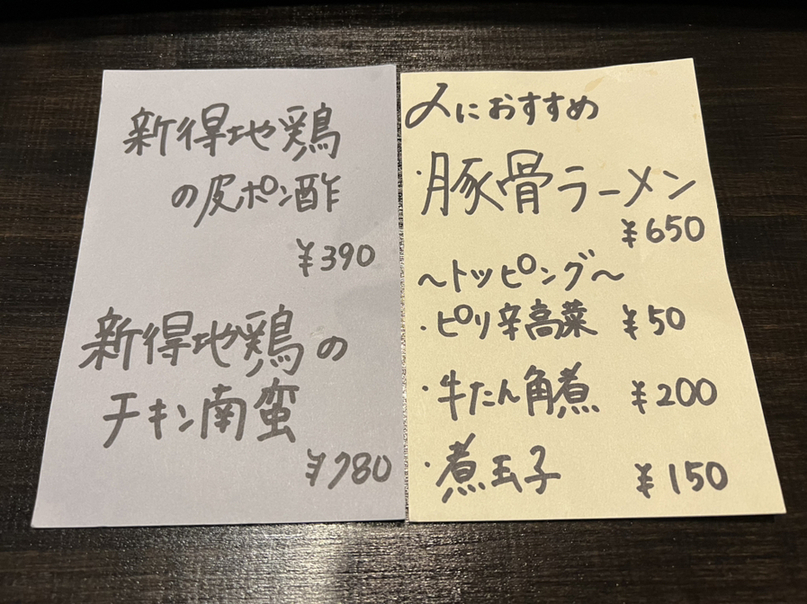 新得地鶏
の皮ポン酢
¥390
新得地鶏の
チキン南蛮
¥780
〆におすすめ
・豚骨ラーメン
¥650
～トッピング～
・ピリ辛高菜 ¥50
・牛たん角煮 ¥200
・煮玉子 ¥150